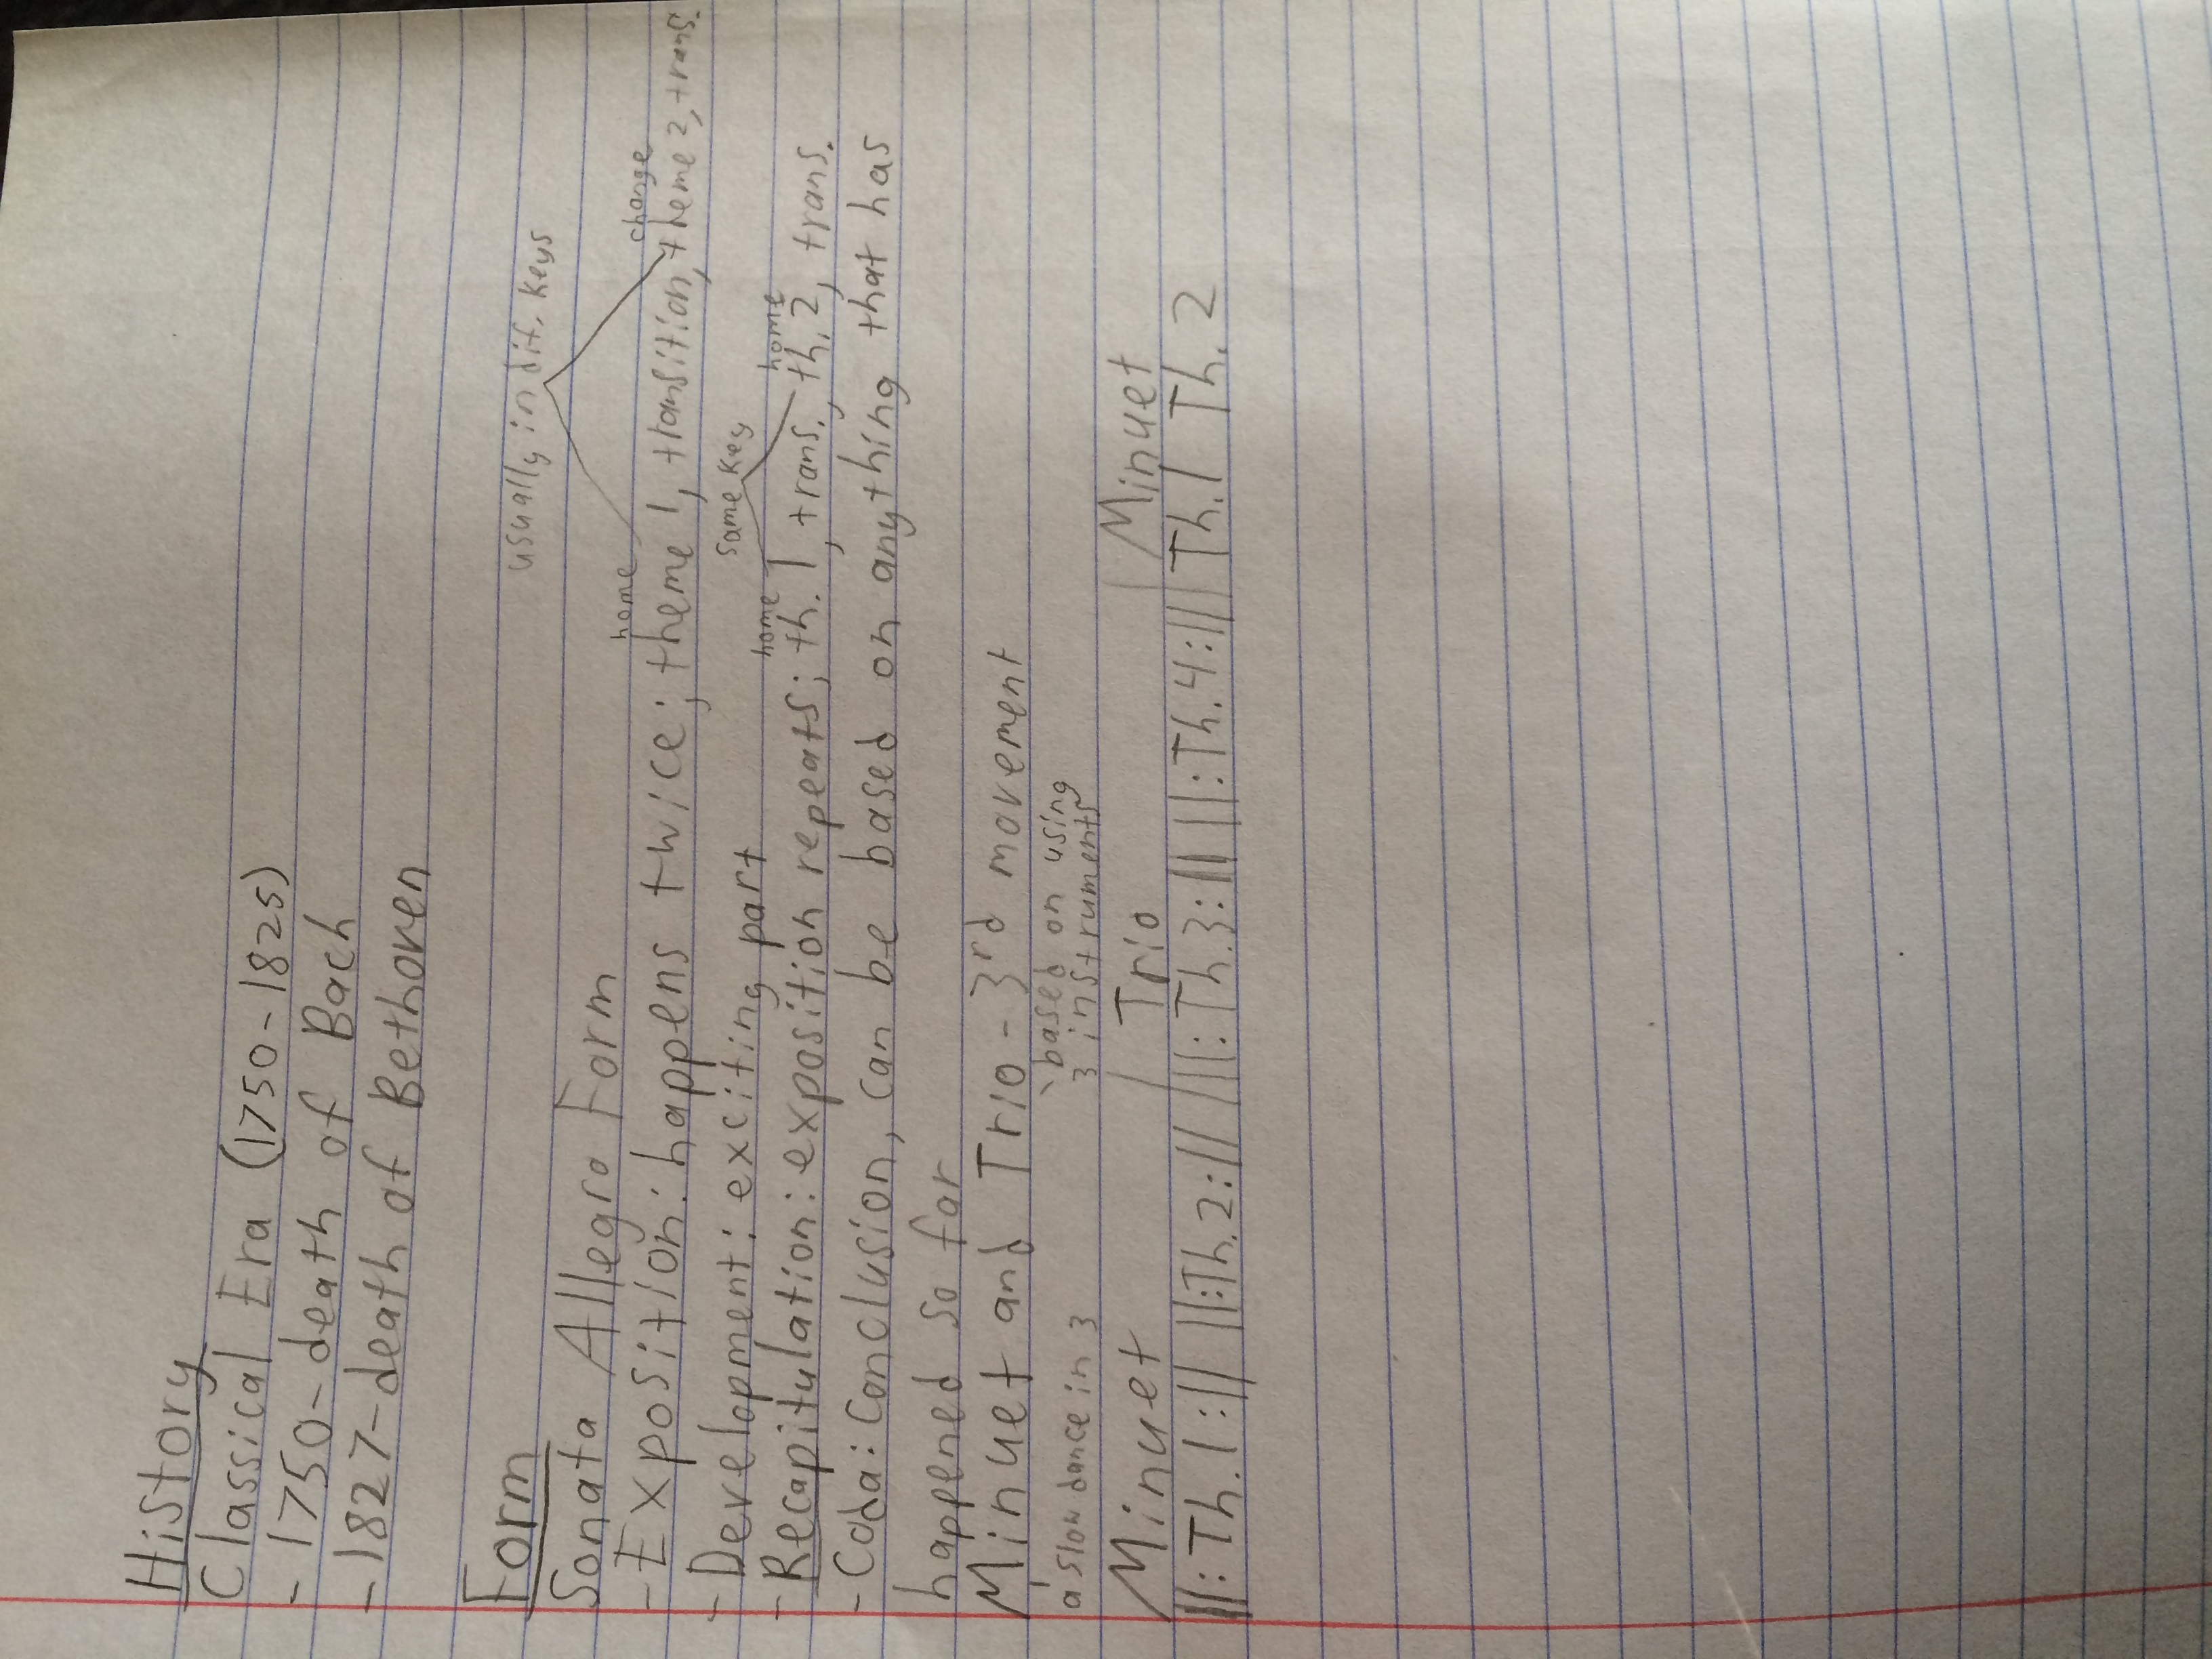 History
Classical Era (1750-1825)
- 1750-death of Bach
- 1827-death of Bethoven
Form
usually in dif. keys
Sonata Allegro Form
home change
- Exposition: happens twice; theme 1, transition, theme 2, trans.
- Development: exciting part
same key
home home
- Recapitulation: exposition repeats; th. 1, trans., th. 2, trans.
- Coda: Conclusion, can be based on anything that has
happened so far
Minuet and Trio - 3rd movement
a slow dance in 3
based on using
3 instruments
Minuet / Trio / Minuet
||: Th. 1 :|| ||: Th. 2 :|| ||: Th. 3 :|| ||: Th. 4 :|| Th. 1 Th. 2